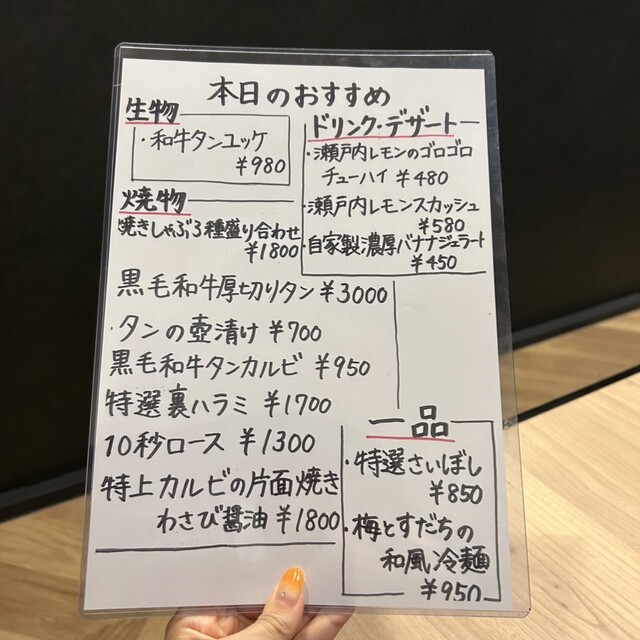 本日のおすすめ
生物
・和牛タンユッケ
¥980
焼物
焼きしゃぶ3種盛り合わせ
¥1800
黒毛和牛厚切りタン ¥3000
・タンの壺漬け ¥700
黒毛和牛タンカルビ ¥950
特選裏ハラミ ¥1700
10秒ロース ¥1300
特上カルビの片面焼き
わさび醤油 ¥1800
ドリンク・デザート
・瀬戸内レモンのゴロゴロ
チューハイ ¥480
・瀬戸内レモンスカッシュ
¥580
・自家製濃厚バナナジェラート
¥450
一品
・特選さいぼし
¥850
・梅とすだちの
和風冷麺
¥950